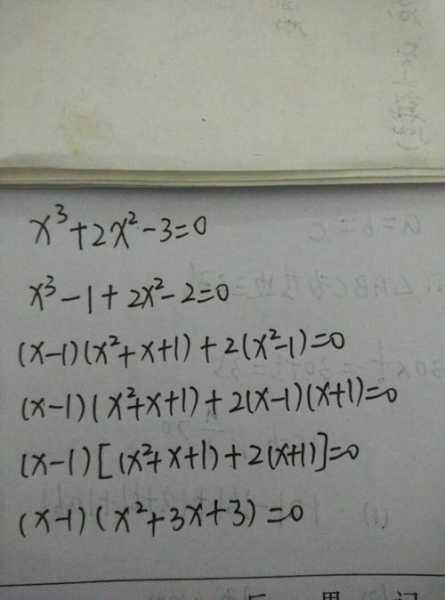 x³+2x²-3=0
x³-1+2x²-2=0
(x-1)(x²+x+1)+2(x²-1)=0
(x-1)(x²+x+1)+2(x-1)(x+1)=0
(x-1)[(x²+x+1)+2(x+1)]=0
(x-1)(x²+3x+3)=0